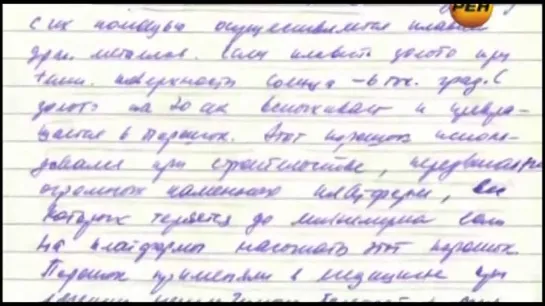 РЕН
с их помощью осуществляется плавка
драг. металлов. Если плавить золото при
темп. поверхности Солнца – 6 тыс. град. С
золото на 20 сек вспыхивает и превра-
щается в порошок. Этот порошок исполь-
зовали при строительстве, передвигая
огромных каменных платформ, вес
которых теряется до минимума если
на платформы насыпать этот порошок.
Порошок применяли в медицине при